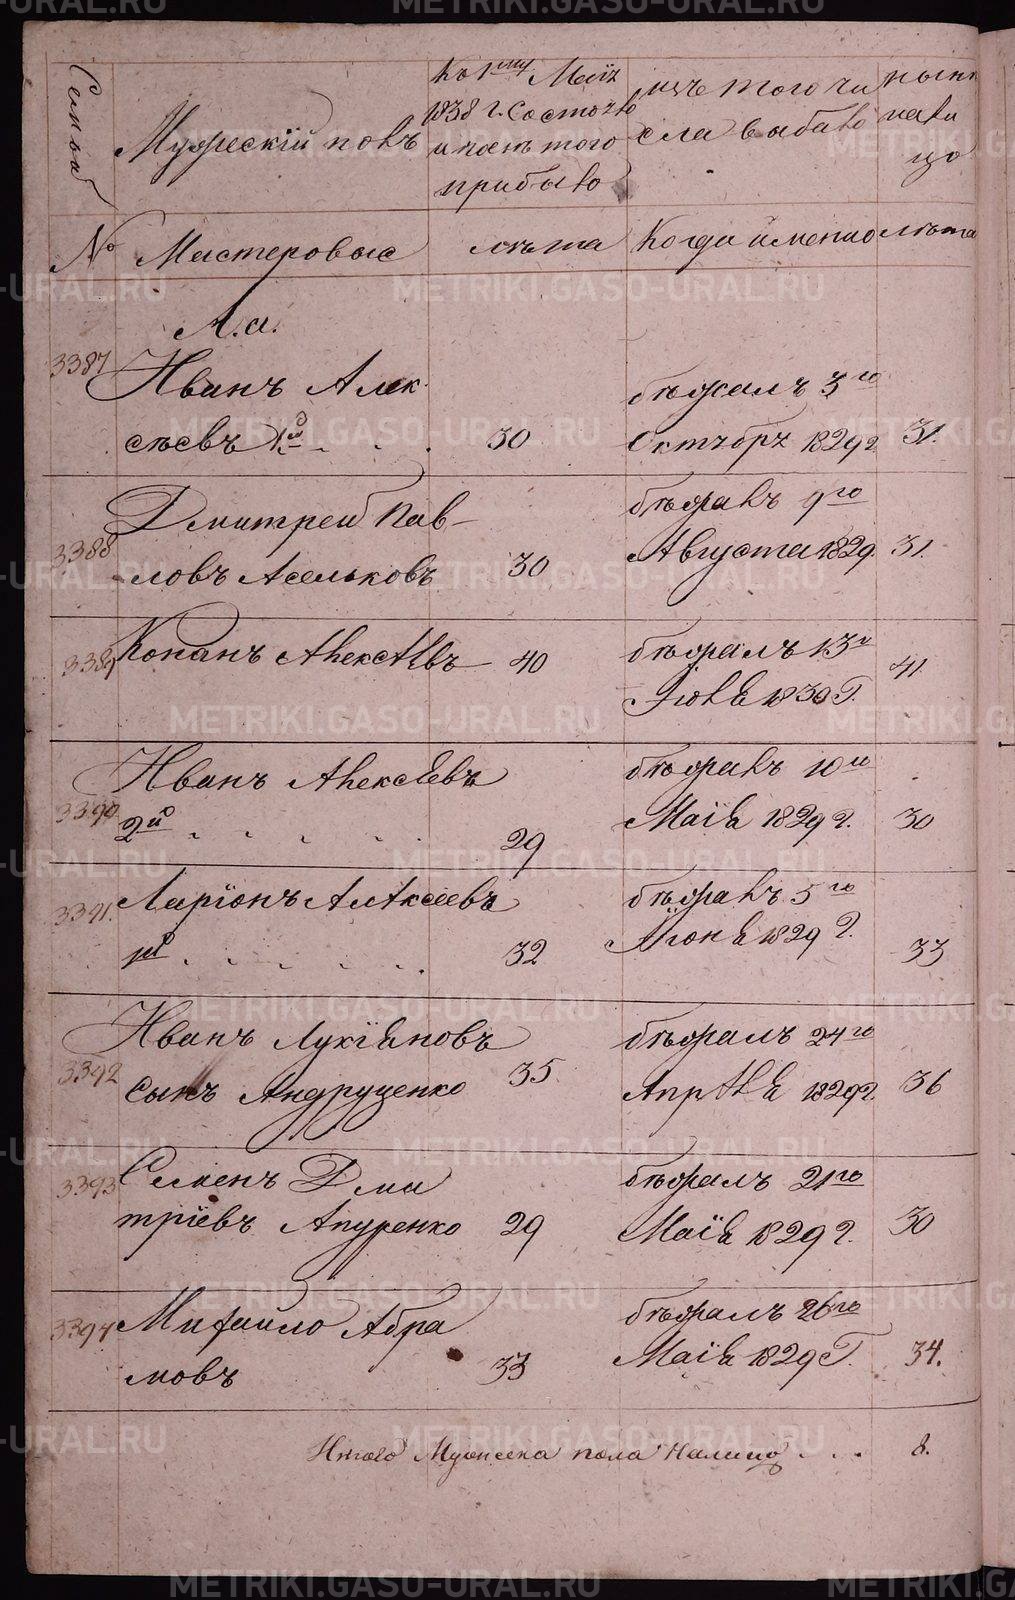 Семьи
Мужескій полъ
Къ 1му Маїя
1838 г. Состояло
и послѣ того
прибыло
изъ того чи
сла выбыло
нынѣ
нали
цо
№ Мастеровые
лѣта
Когда именно
лѣта
А. а.
3387 Иванъ Алек
сѣевъ 1й 30
бѣжалъ 3го
Октября 1829 г. 31.
3388 Дмитрей Пав-
ловъ Асельковъ 30
бѣжалъ 9го
Августа 1829. 31.
3389 Конанъ Алексѣевъ 40
бѣжалъ 13го
Июля 1830 Г. 41.
3390 Иванъ Алексѣевъ
2й 29
бѣжалъ 10го
Маїя 1829 г. 30
3391. Ларїонъ Алексѣевъ
1й 32
бѣжалъ 5го
Июня 1829 г. 33
3392 Иванъ Лукїяновъ
сынъ Андрущенко 35
бѣжалъ 24го
Апрѣля 1829 г. 36
3393 Семенъ Дми
трїевъ Апуренко 29
бѣжалъ 21го
Маїя 1829 г. 30
3394 Михаило Абра
мовъ 33
бѣжалъ 26го
Маїя 1829 Г. 34.
Итого Мужеска пола налицо . . . 8.
METRIKI.GASO-URAL.RU